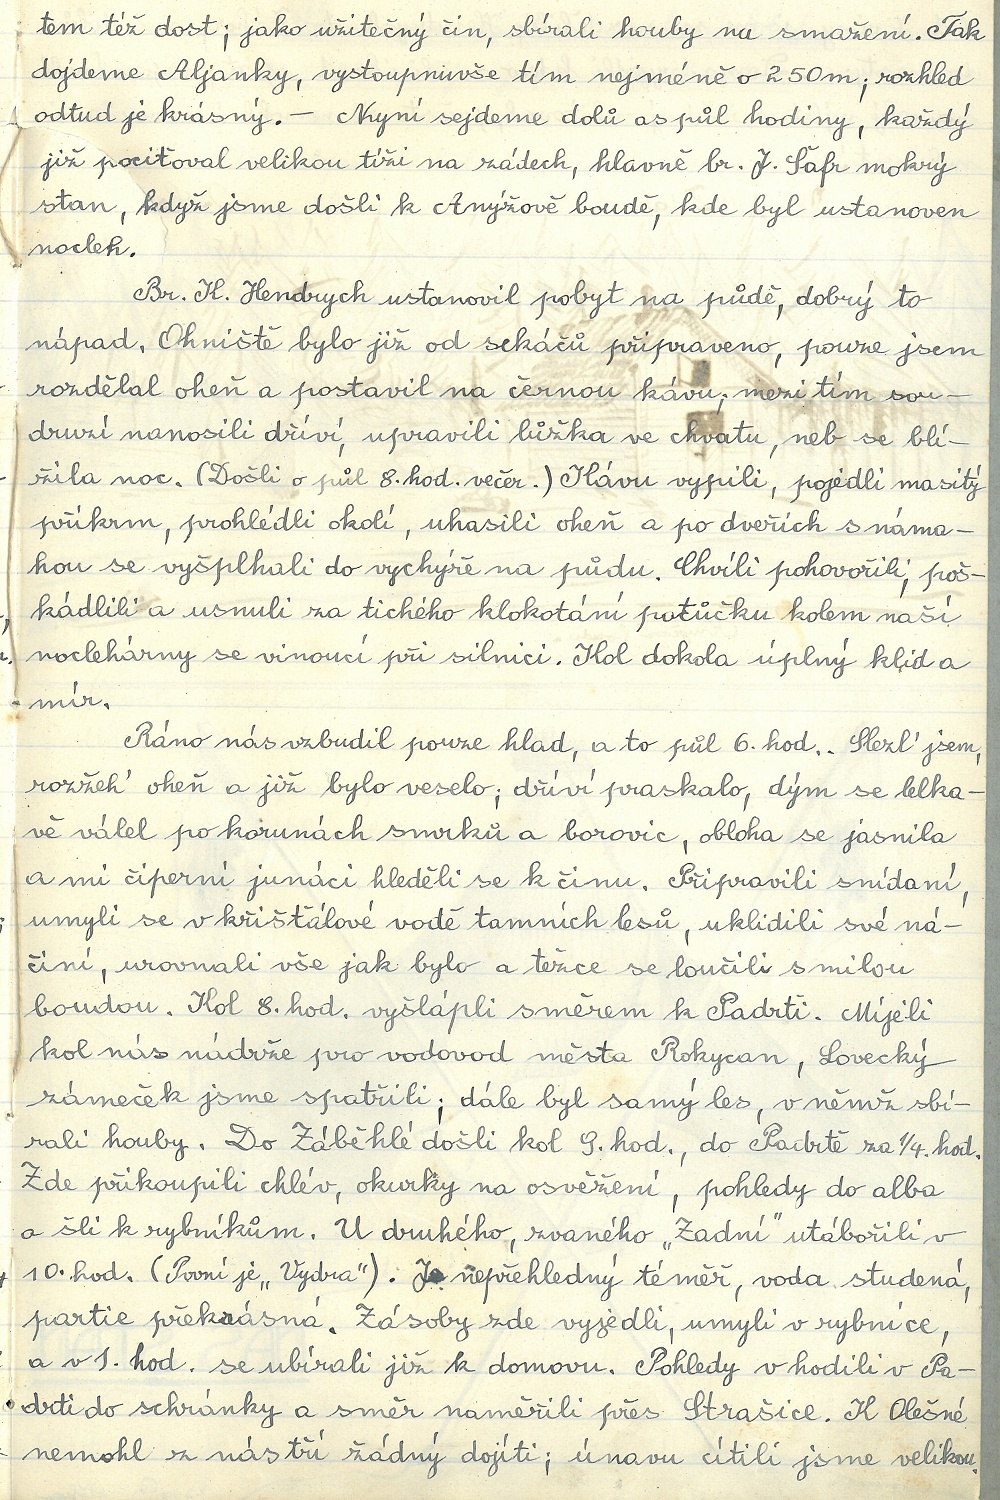 tem též dost; jako užitečný čin, sbírali houby na smažení. Tak
dojdeme Aljanky, vystoupnuvše tím nejméně o 250m; rozhled
odtud je krásný. — Nyní sejdeme dolů as půl hodiny, každý
již pociťoval velikou tíži na zádech, hlavně br. J. Šafr mokrý
stan, když jsme došli k Anýžově boudě, kde byl ustanoven
nocleh.
Br. K. Hendrych ustanovil pobyt na půdě, dobrý to
nápad. Ohniště bylo již od sekáčů připraveno, pouze jsem
rozdělal oheň a postavil na černou kávu; mezi tím sou-
druzí nanosili dříví, upravili lůžka ve chvatu, neb se blí-
žila noc. (Došli o půl 8. hod. večer.) Kávu vypili, pojedli masitý
příkrm, prohlédli okolí, uhasili oheň a po dveřích s náma-
hou se vyšplhali do vychýře na půdu. Chvíli pohovořili, poš-
kádlili a usnuli za tichého klokotání potůčku kolem naší
noclehárny se vinoucí při silnici. Kol dokola úplný klid a
mír.
Ráno nás vzbudil pouze hlad, a to půl 6. hod.. Slezl' jsem,
rozžeh' oheň a již bylo veselo; dříví praskalo, dým se lelka-
vě válel po korunách smrků a borovic, obloha se jasnila
a mi čiperní junáci hleděli se k činu. Připravili snídaní,
umyli se v křišťálové vodě tamních lesů, uklidili své ná-
činí, urovnali vše jak bylo a těžce se loučili s milou
boudou. Kol 8. hod. vyšlápli směrem k Padrti. Míjeli
kol nás nádrže pro vodovod města Rokycan, Lovecký
zámeček jsme spatřili; dále byl samý les, v němž sbí-
rali houby. Do Záběhlé došli kol 9. hod., do Padrtě za 1/4. hod.
Zde přikoupili chlév, okurky na osvěžení, pohledy do alba
a šli k rybníkům. U druhého, zvaného „Zadní" utábořili v
10. hod. (První je „Vydra"). Je nepřehledný téměř, voda studená,
partie překrásná. Zásoby zde vyjedli, umyli v rybníce,
a v 1. hod. se ubírali již k domovu. Pohledy vhodili v Pa-
drti do schránky a směr naměřili přes Strašice. K Olešné
nemohl z nás tří žádný dojíti; únavu cítili jsme velikou,